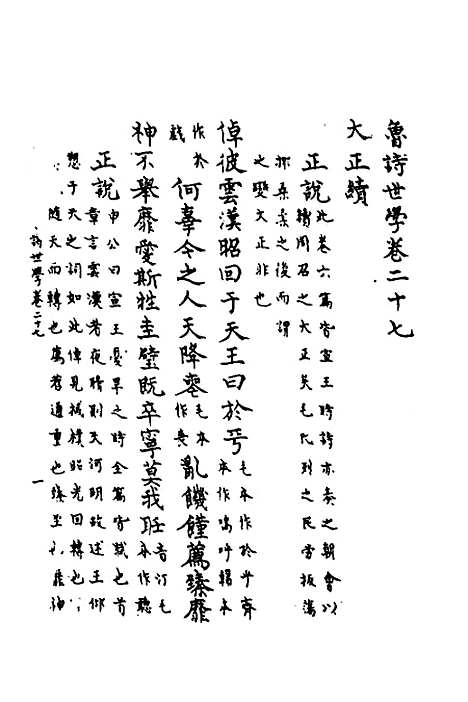 魯詩世學卷二十七
大正續
正說此卷六篇皆宣王時詩亦奏之朝會以
續周召之大正矣毛氏列之民勞板蕩
抑桑柔之後而謂
之變大正非也
倬彼雲漢昭回于天王曰於乎毛本作於乎齊
本作嗚呼韓本
作於
戲何辜今之人天降喪毛本
作喪亂饑饉薦臻靡
神不舉靡愛斯牲圭璧既卒寧莫我聽音汀毛
本作聽
正說申公曰宣王憂旱之時全篇皆賦也首
章言雲漢者夜晴則天河明故述王仰
愬于天之詞如此倬見棫樸昭光回轉也
隨天而轉也薦荐通重也臻至也靡神
詩世學卷二十七
一